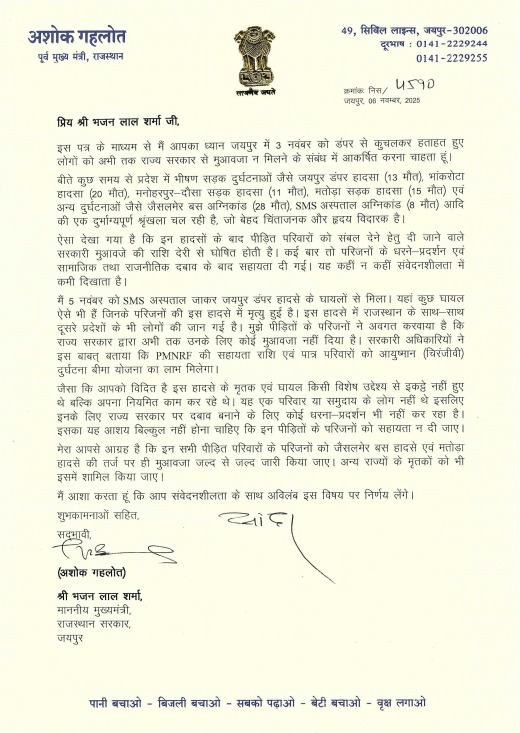 अशोक गहलोत
पूर्व मुख्य मंत्री, राजस्थान
सत्यमेव जयते
49, सिविल लाइन्स, जयपुर-302006
दूरभाष : 0141-2229244
0141-2229255
क्रमांक: निस/ 4590
जयपुर, 06 नवम्बर, 2025
प्रिय श्री भजन लाल शर्मा जी,
इस पत्र के माध्यम से मैं आपका ध्यान जयपुर में 3 नवंबर को डंपर से कुचलकर हताहत हुए
लोगों को अभी तक राज्य सरकार से मुआवजा न मिलने के संबंध में आकर्षित करना चाहता हूं।
बीते कुछ समय से प्रदेश में भीषण सड़क दुर्घटनाओं जैसे जयपुर डंपर हादसा (13 मौत), भांकरोटा
हादसा (20 मौत), मनोहरपुर–दौसा सड़क हादसा (11 मौत), मतोड़ा सड़क हादसा (15 मौत) एवं
अन्य दुर्घटनाओं जैसे जैसलमेर बस अग्निकांड (28 मौत), SMS अस्पताल अग्निकांड (8 मौत) आदि
की एक दुर्भाग्यपूर्ण श्रृंखला चल रही है, जो बेहद चिंताजनक और हृदय विदारक है।
ऐसा देखा गया है कि इन हादसों के बाद पीड़ित परिवारों को संबल देने हेतु दी जाने वाले
सरकारी मुआवजे की राशि देरी से घोषित होती है। कई बार तो परिजनों के धरने–प्रदर्शन एवं
सामाजिक तथा राजनीतिक दबाव के बाद सहायता दी गई। यह कहीं न कहीं संवेदनशीलता में
कमी दिखाता है।
मैं 5 नवंबर को SMS अस्पताल जाकर जयपुर डंपर हादसे के घायलों से मिला। यहां कुछ घायल
ऐसे भी हैं जिनके परिजनों की इस हादसे में मृत्यु हुई है। इस हादसे में राजस्थान के साथ–साथ
दूसरे प्रदेशों के भी लोगों की जान गई है। मुझे पीड़ितों के परिजनों ने अवगत करवाया है कि
राज्य सरकार द्वारा अभी तक उनके लिए कोई मुआवजा नहीं दिया है। सरकारी अधिकारियों ने
इस बाबत् बताया कि PMNRF की सहायता राशि एवं पात्र परिवारों को आयुष्मान (चिरंजीवी)
दुर्घटना बीमा योजना का लाभ मिलेगा।
जैसा कि आपको विदित है इस हादसे के मृतक एवं घायल किसी विशेष उद्देश्य से इकट्ठे नहीं हुए
थे बल्कि अपना नियमित काम कर रहे थे। यह एक परिवार या समुदाय के लोग नहीं थे इसलिए
इनके लिए राज्य सरकार पर दबाव बनाने के लिए कोई धरना–प्रदर्शन भी नहीं कर रहा है।
इसका यह आशय बिल्कुल नहीं होना चाहिए कि इन पीड़ितों के परिजनों को सहायता न दी जाए।
मेरा आपसे आग्रह है कि इन सभी पीड़ित परिवारों के परिजनों को जैसलमेर बस हादसे एवं मतोड़ा
हादसे की तर्ज पर ही मुआवजा जल्द से जल्द जारी किया जाए। अन्य राज्यों के मृतकों को भी
इसमें शामिल किया जाए।
मैं आशा करता हूं कि आप संवेदनशीलता के साथ अविलंब इस विषय पर निर्णय लेंगे।
शुभकामनाओं सहित,
सद्भावी,
(अशोक गहलोत)
श्री भजन लाल शर्मा,
माननीय मुख्यमंत्री,
राजस्थान सरकार,
जयपुर
पानी बचाओ - बिजली बचाओ - सबको पढ़ाओ - बेटी बचाओ - वृक्ष लगाओ